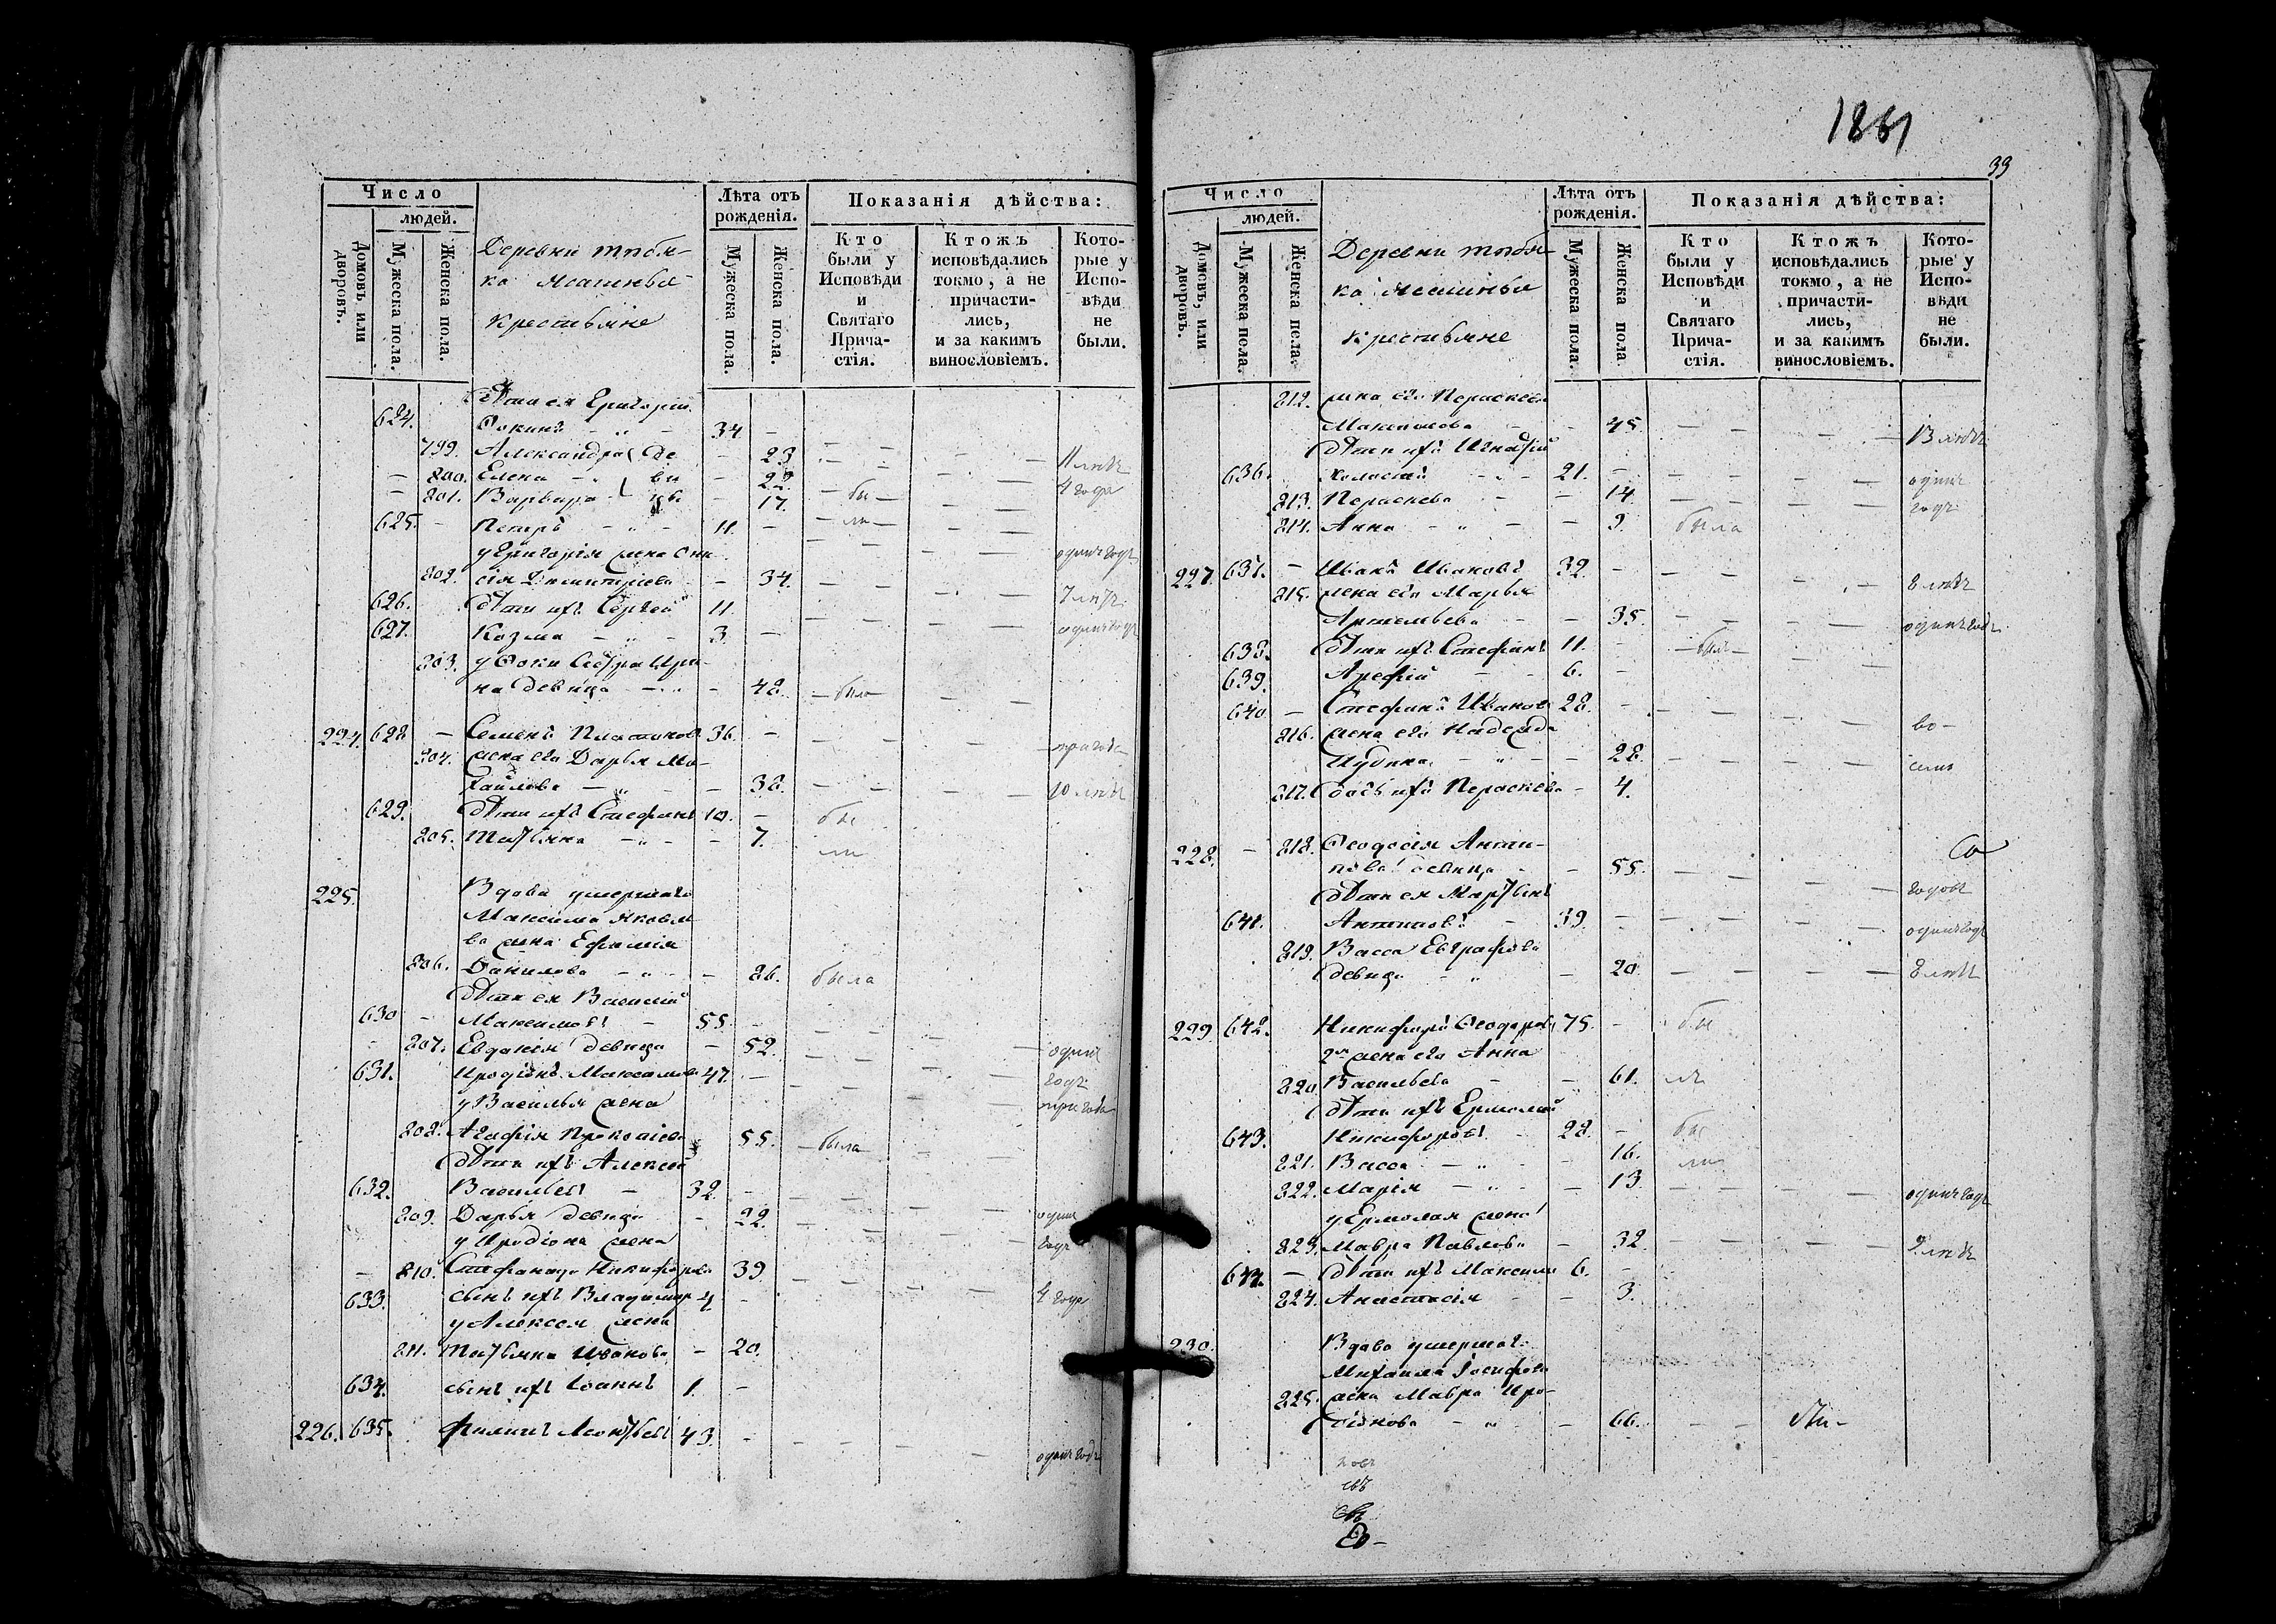 Число
людей.
Домовъ или дворовъ.
Мужеска пола.
Женска пола.
Деревни
крестьяне
Лѣта отъ рожденія.
Мужеска пола.
Женска пола.
Показанія дѣйства:
Кто были у Исповѣди и Святаго Прича-стія.
Ктожъ исповѣдались токмо, а не причасти-лись, и за какимъ винословіемъ.
Кото-рые у Испо-вѣди не были.
624. Дѣти ея Григорій
34 –
799. Александра де – 23 11 лѣтъ
– 800. Елена – ви – 22. 4 года
– 801. Варвара цы – 17. – бы –
625. – Петръ – 11. – – ли –
у Григорія жена одинъ годъ
802. Димитріева – 34. 7 лѣтъ
626. Дѣти ихъ Сергей 11. одинъ годъ
627. Козма – 3. –
803. у Фоки сестра Ири-
на девица – 48. – была
224. 628 – Семенъ 36. – три года
804. жена его Дарья Ми-
хайлова – 38. 10 лѣтъ
629. Дѣти ихъ Стефанъ 10. – бы
805. Татьяна – 7. ли
225. Вдова умершаго
Максима Яковле
ва жена Ефимія
806. Данилова – 86. была
Дѣти ея Василий
630 – Максимовъ – 55. –
– 807. Евдокія девица – 52. одинъ
631. Иродіонъ Максимовъ 47. – годъ
у Василья жена три года
808. Агафія Прокопіева 55. – была –
Дѣти ихъ Алексей
632. Васильевъ – 32. –
809. Дарья девица – 22. одинъ
у Иродіона жена годъ
– 810. Стефанида Никифорова 39
633. сынъ ихъ Владимиръ 4 – 4 года
у Алексея жена
811. Татьяна Иванова – 20.
634. сынъ ихъ Іоаннъ 1. –
226. 635. Филипъ Леонтьевъ 43. – одинъ годъ
1861
33
Число
людей.
Домовъ, или дворовъ.
Мужеска пола.
Женска пола.
Деревни
крестьяне
Лѣта отъ рожденія.
Мужеска пола.
Женска пола
Показанія дѣйства:
Кто были у Исповѣди и Святаго Прича-стія.
Ктожъ исповѣдались токмо, а не причасти-лись, и за какимъ винословіемъ.
Кото-рые у Испо-вѣди не были.
812. жена его Пераскева
– 45. 13 лѣтъ
Дѣти ихъ Игнатій
636. холостой – 21. – одинъ
813. Пераскева – 14. годъ
814. Анна – 9. была
227. 637. – Иванъ Ивановъ 32. – 8 лѣтъ
815. жена его Марья
Артемьева – 35. одинъ годъ
638. Дѣти ихъ Стефанъ 11. – – былъ –
639. Арефій – 6. –
640 – Стефанъ Иванов 28. –
816. жена его Надежда во –
– 28. семь
817. дочь ихъ Пераскева – 4.
228. – 818. Феодосія Анти-
пова девица – 55. годовъ
Дѣти ея
641. Антиповъ – 39. – одинъ годъ
819. Васса Евграфова
девица – 20. 8 лѣтъ
229. 642. Никифоръ Феодоров 75. – бы
2я жена его Анна
820 Васильева – 61. лъ
Дѣти ихъ Ермолай
643. Никифоровъ – 28. – бы
821. Васса – 16. ли
822. Марія – 13. одинъ годъ
у Ермолая жена
823. Мавра Павлова – 32. 9 лѣтъ
644. – Дѣти ихъ Максимъ 6. –
824. Анастасія – 3.
230. Вдова умершаг.
Михаила Іосифова
825. жена Мавра Иро-
діонова – 66.